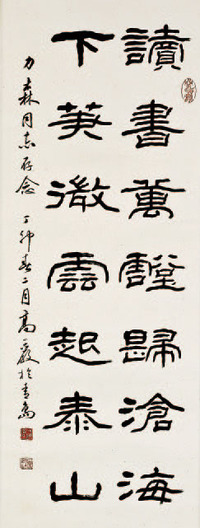 讀書萬壑歸滄海
下筆微雲起泰山
力森同志存念 丁卯春二月高小巖於青島